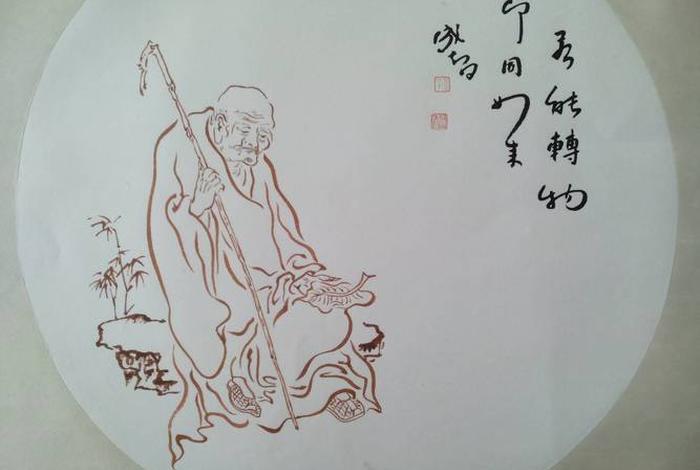 若能轉物
即同如来